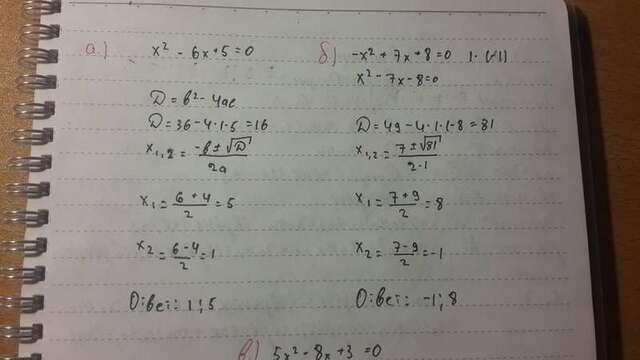 а.) x² - 6x+5=0
D=b²-4ac
D=36-4·1·5=16
x₁,₂ = (-b±√D)/2a
x₁ = (6+4)/2 = 5
x₂ = (6-4)/2 = 1
Ответ: 1;5
б.) -x²+7x+8=0 |·(-1)
x²-7x-8=0
D=49-4·1·(-8)=81
x₁,₂ = (7±√81)/2·1
x₁ = (7+9)/2 = 8
x₂ = (7-9)/2 = -1
Ответ: -1;8
в) 5x²-8x+3=0